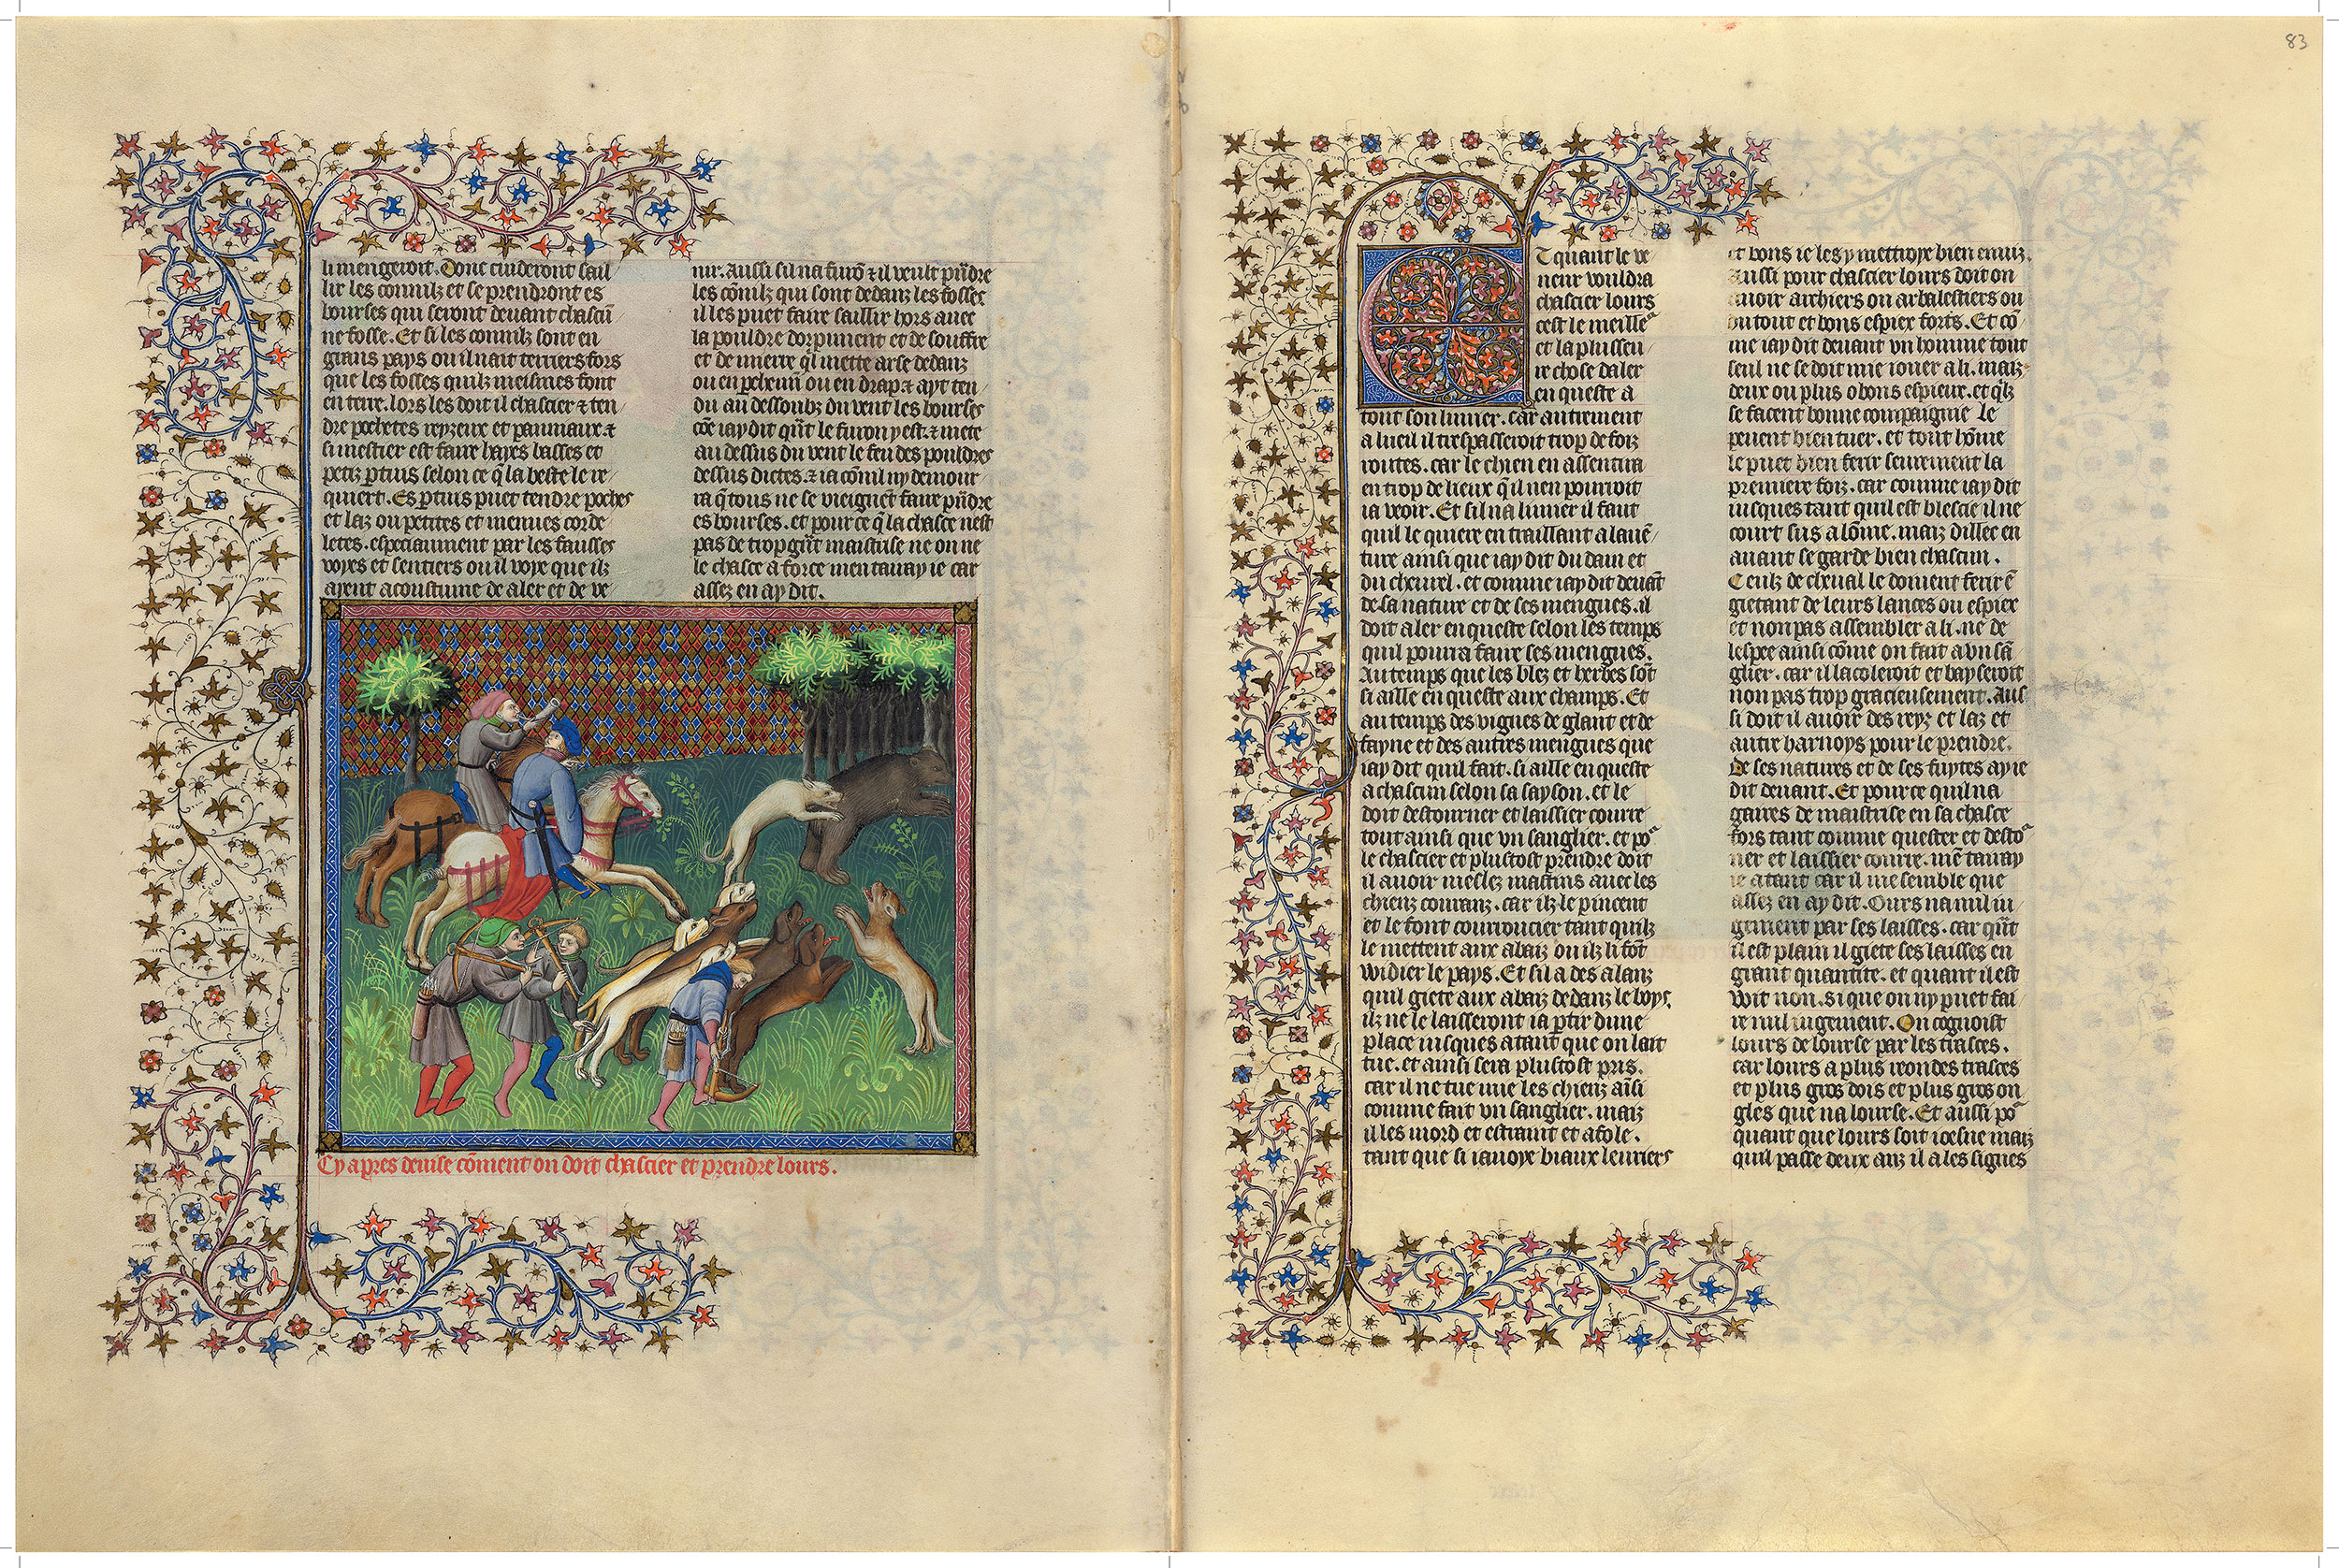 li mengeront. Donc cuideront sail/
lir les connilz et se prendront es
bourses qui seront deuant chascũ/
ne fosse. Et si les connilz sont en
grans pays ou il nait terriers fors
que les fosses quilz meismes font
en terre. lors les doit il chascier ⁊ ten/
dre pochetes reyzeux et panniaux.⁊
si mestier est faire hayes basses et
petiz ptius selon ce q̃ la beste le re/
quiert. Es ptius puet tendre poches
et laz ou petites et menues corde/
letes. especiaument par les fausses
voyes et sentiers ou il voye que ilz
ayent acoustume de aler et de ve/
nir. Aussi sil na furõ ⁊ il veult pñdre
les cõnilz qui sont dedanz les fosses
il les puet faire saillir hors auec
la pouldre dorpiment et de souffre
et de mierre q̃l mette arse dedanz
ou en pchemĩ ou en drap ⁊ ayt ten/
du au dessoubz du vent les bourses
cõe iay dit qñt le furon y est. ⁊ mete
au dessus du vent le feu des pouldres
dessus dictes. ⁊ ia cõnil ny demour/
ra q̃ tous ne se vieignẽt faire pñdre
es bourses. et pour ce q̃ la chasce nest
pas de trop grãt maistrise ne on ne
le chasce a force men tauay ie car
assez en ay dit.
Cy apres deuise cõment on doit chascier et prendre lours.
83
Et quant le ve/
neur vouldra
chascier lours
cest le meilleʳ
et la plus seu/
re chose daler
en queste a
tout son limier. car autrement
a lueil il trespasseroit trop de foiz
routes. car le chien en assentira
en trop de lieux q̃ il nen pourroit
ia veoir. Et sil na limier il faut
quil le quiere en traillant a lauẽ/
ture ainsi que iay dit du dain et
du cheurel. et comme iay dit deuãt
de sa nature et de ses mengues. il
doit aler en queste selon les temps
quil pourra faire ses mengues.
Au temps que les blez et herbes sõt
si aille en queste aux champs. Et
au temps des vignes de glant et de
fayne et des autres mengues que
iay dit quil fait. si aille en queste
a chascun selon sa sayson. et le
doit destourner et laissier courre
tout ainsi que vn sanglier. et poʳ
le chascier et plustost prendre doit
il auoir meslez mastins auec les
chiens couranz. car ilz le pincent
et le font courroucier tant quilz
le mettent aux abaiz ou ilz li fõt
widier le pays. Et sil a des alanz
quil giete aux abaiz dedanz le boys.
ilz ne le laisseront ia ptir dune
place iusques atant que on lait
tue. et ainsi sera plustost pris.
car il ne tue mie les chiens aĩsi
comme fait vn sanglier. maiz
il les mord et estraint et afole.
tant que si iauoye biaux leuriers
et bons ie les y mettroye bien enuiz.
Aussi pour chascier lours doit on
auoir archiers ou arbalestiers ou
du tout et bons espiex forts. Et cõ/
me iay dit deuant vn homme tout
seul ne se doit mie iouer a li. maiz
deux ou plus o bons espieux. et q̃lz
se facent bonne compaignie le
peuent bien tuer. et tout hõme
le puet bien ferir seurement la
premiere foiz. car comme iay dit
iusques tant quil est blescie il ne
court sus a lõme. maiz dillec en
auant se garde bien chascun.
Ceulz de cheual le doiuent ferir ẽ
gietant de leurs lances ou espiex
et non pas assembler a li. ne de
lespee ainsi cõme on fait a vn sã/
glier. car il lacoleroit et bayseroit
non pas trop gracieusement. Aus/
si doit il auoir des reyz et laz et
autre harnoys pour le prendre.
De ses natures et de ses fuytes ay ie
dit deuant. Et pour ce quil na
gaires de maistrise en sa chasce
fors tant comme quester et destoʳ/
ner et laissier courre. mẽ tauay
ie atant car il me semble que
assez en ay dit. Ours na nul iu/
gement par ses laisses. car qñt
il est plain il giete ses laisses en
grant quantite. et quant il est
voit non. si que on ny puet fai/
re nul iugement. On cognoist
lours de lourse par les trasces.
car lours a plus rondes trasces
et plus gros dois et plus gros on/
gles que na lourse. Et aussi poʳ
quant que lours soit ioesne maiz
quil passe deux anz il a les signes